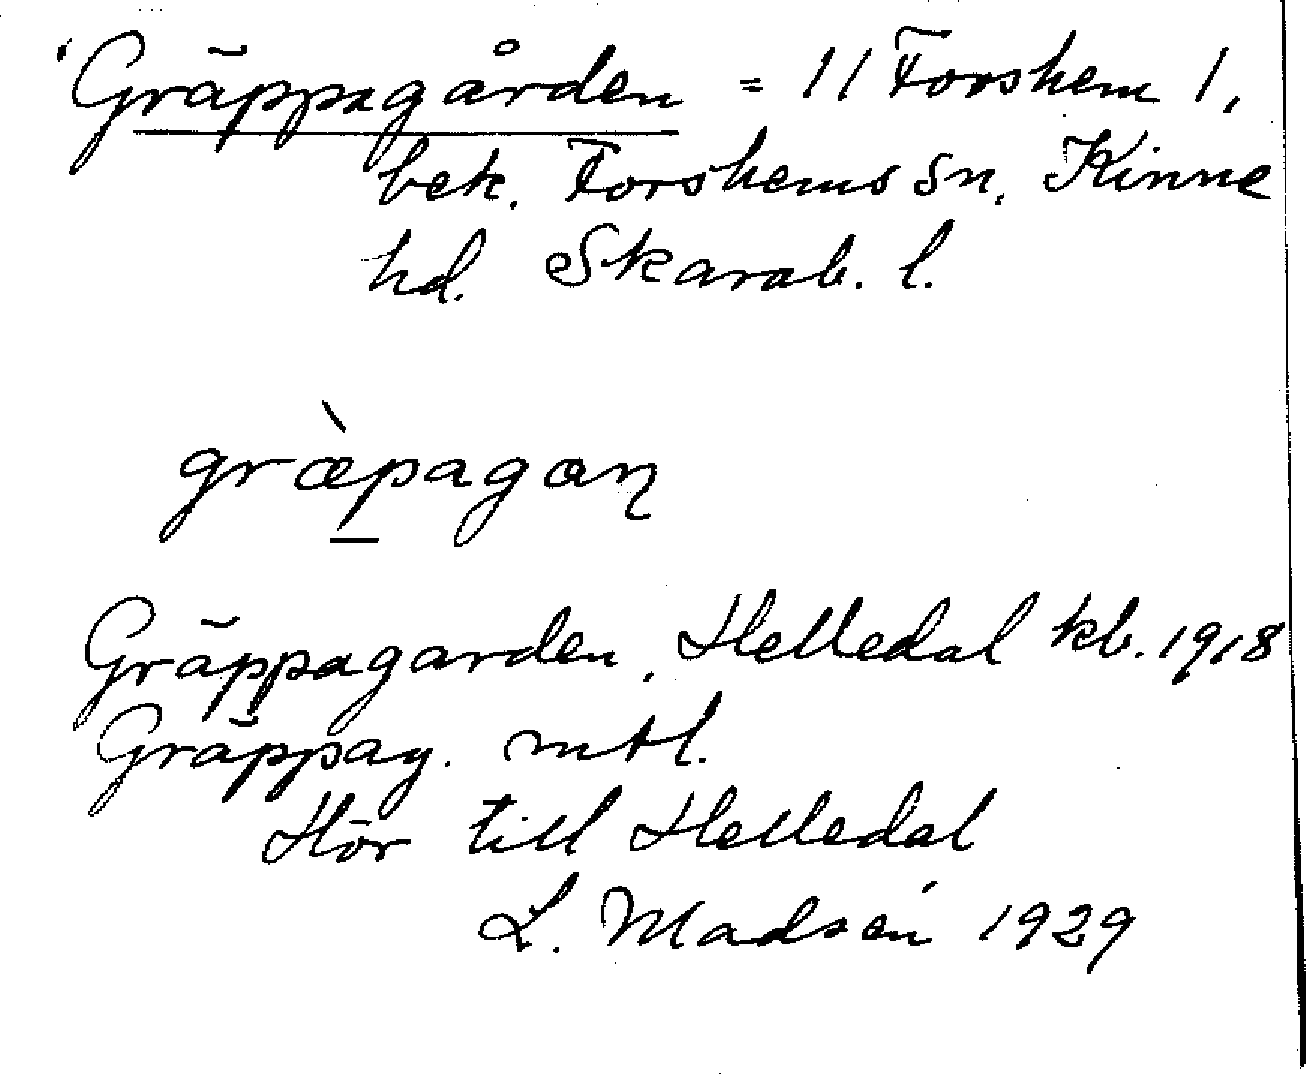 Gräppagården = 11 Forshem 1,
bek. Forshems sn. Kinne
hd. Skarab. l.
græ̀pagaṇ
Gräppagarden, Helledal kb. 1918
Gräppag. mtl.
Hör till Helledal
L. Madsén 1929